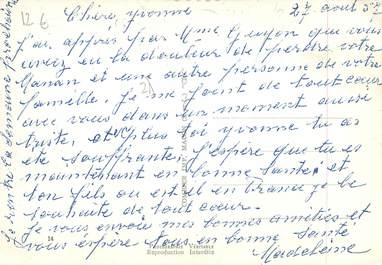 12 €
Chère yvonne 27 août 57
J'ai appris par Mme Guyon que vous
aviez eu la douleur de perdre votre
Maman et une autre personne de votre
famille. Je me joint de tout cœur
avec vous dans un moment aussi
triste, et toi yvonne tu as
été souffrante, j'espère que tu es
maintenant en bonne santé et
ton fils ou est il en France je le
souhaite de tout cœur.
Je vous envoie mes bonnes amitiés et
vous espère tous en bonne santé
Madeleine
Je rentre la semaine prochaine
Reproduction Interdite